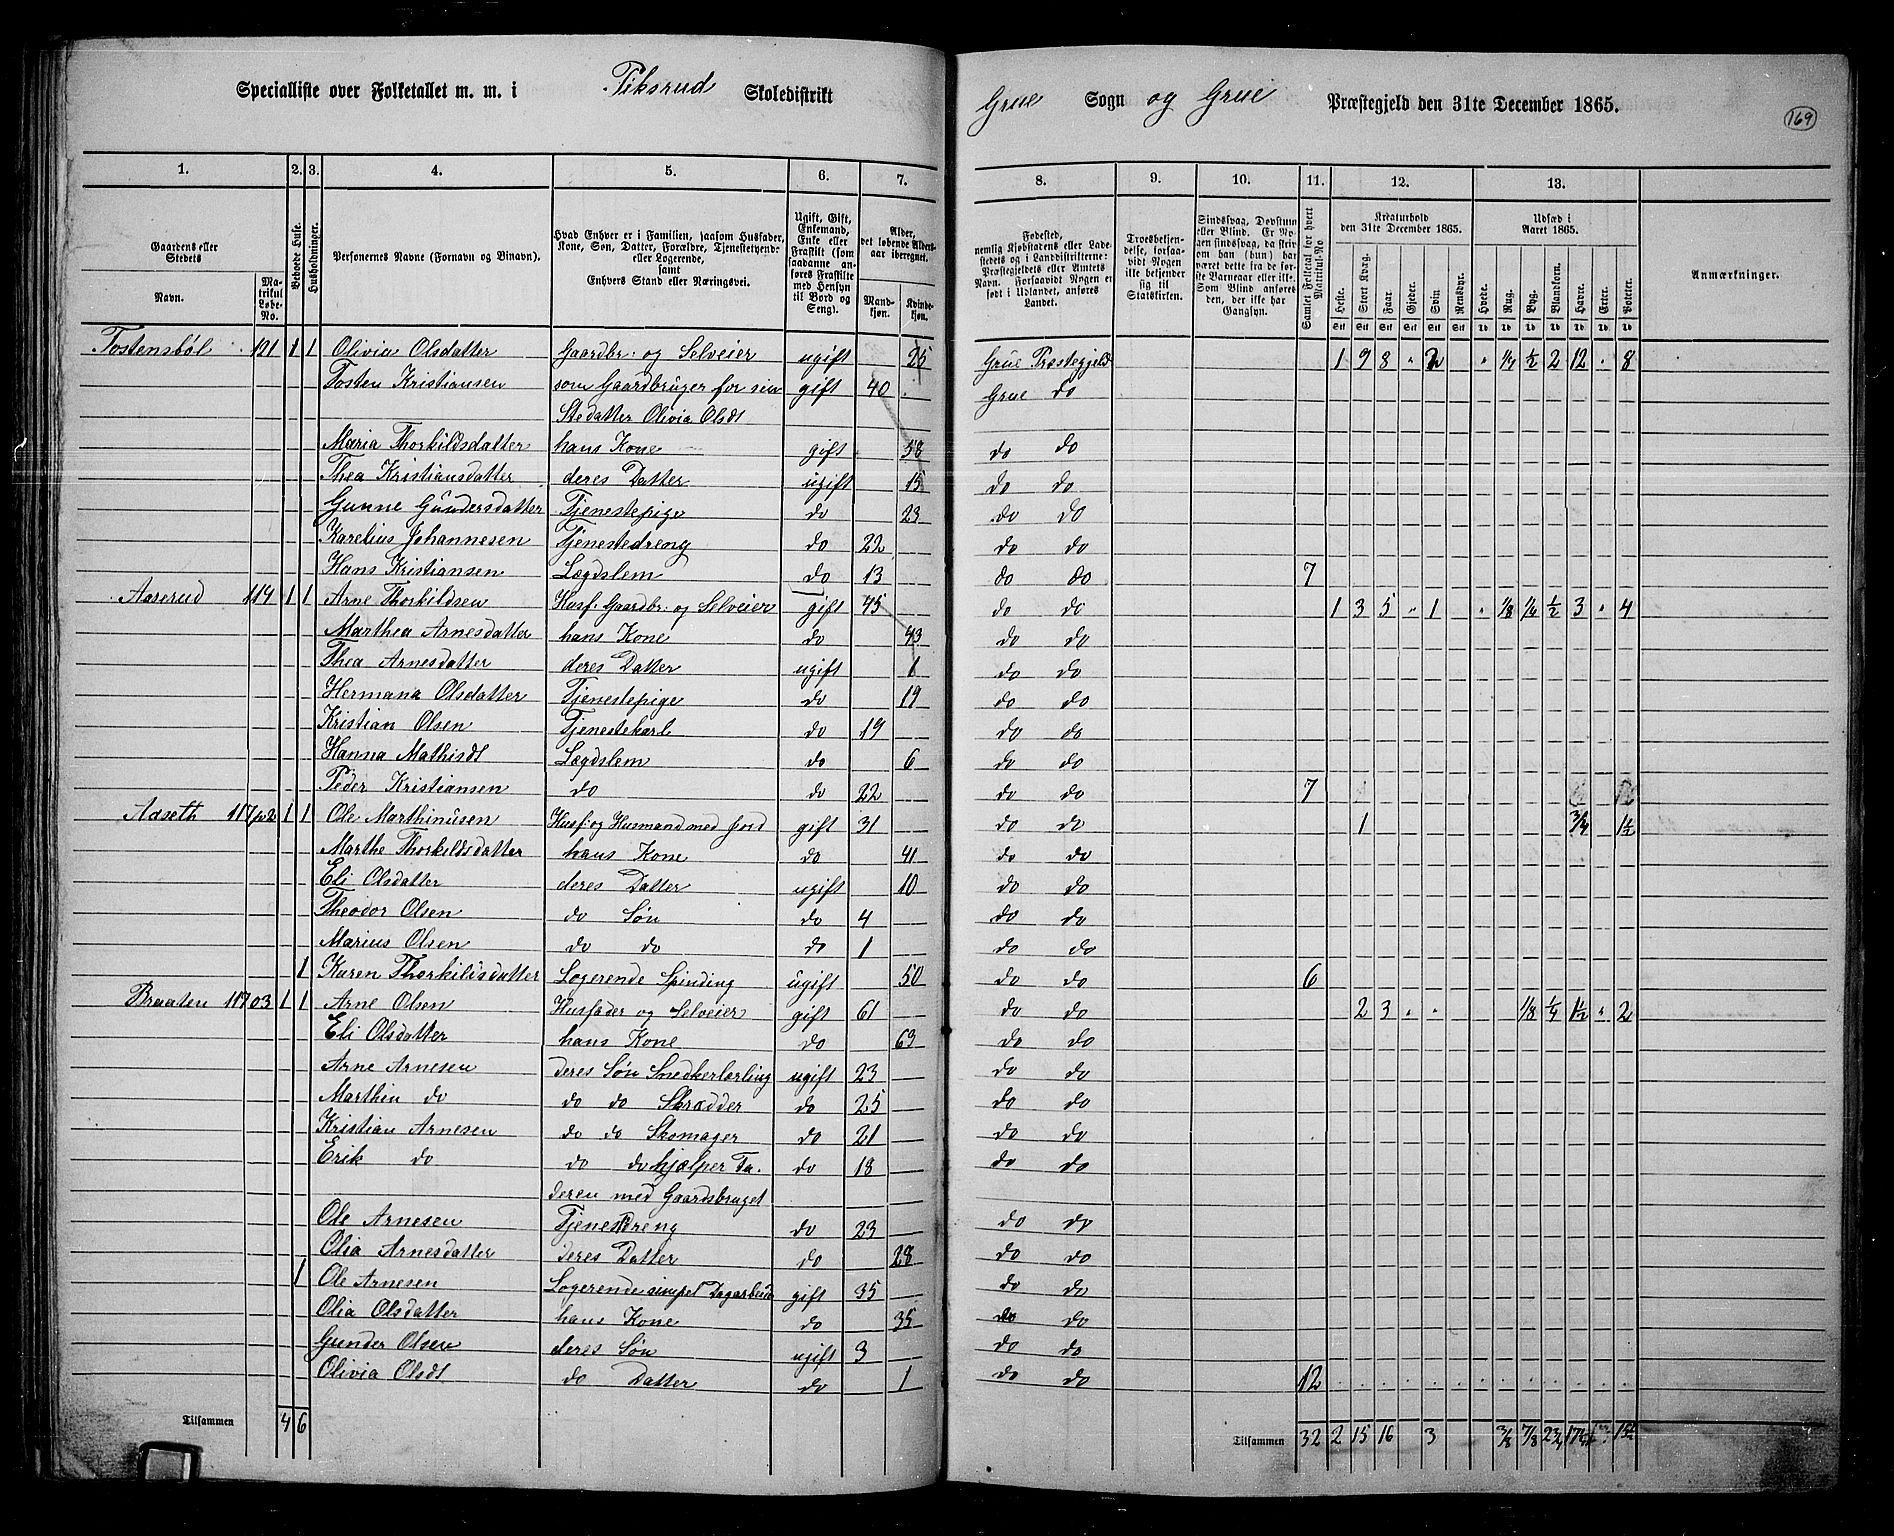 Specialliste over Folketallet m. m. i Piksrud Skoledistrikt
Grue Sogn og Grue Præstegjeld den 31te December 1865.
169
1. 2. 3. 4. 5. 6. 7. 8. 9. 10. 11. 12. 13.
Gaardens eller Stedets
Navn.
Matrikul Løbe-No.
Beboede Huse.
Husholdninger.
Personernes Navne (Fornavn og Binavn).
Hvad Enhver er i Familien, saasom Husfader, Kone, Søn, Datter, Forældre, Tjenestetyende eller Logerende, samt Enhvers Stand eller Næringsvei.
Ugift, Gift, Enkemand, Enke eller Fraskilt (som saadanne anføres Fraskilte med Hensyn til Bord og Seng).
Alder, det løbende Aldersaar iberegnet.
Mandkjøn. Kvindekjøn.
Fødested, nemlig Kjøbstadens eller Ladestedets og i Landdistrikterne: Præstegjeldets eller Amtets Navn. Forsaavidt Nogen er født i Udlandet, anføres Landet.
Troesbekjendelse, forsaavidt Nogen ikke bekjender sig til Statskirken.
Sindssvag, Døvstum eller Blind. Om Nogen sindssvag, da hvorom han (hun) har været dette fra de første Barneaar eller ikke. Som Blind anføres den, der ikke har Gangsyn.
Samlet Folketal for hvert Matrikul-No.
Kreaturhold den 31te December 1865.
Heste. Stort Kvæg. Faar. Gjeder. Svin. Rensdyr.
Udsæd i Aaret 1865.
Hvede. Rug. Byg. Blandkorn. Havre. Erter. Poteter.
Anmærkninger.
Tostensbøl 121 1 1 Olivia Olsdatter Gaardbr: og Selveier ugift 25 Grue Præstegjeld 1 9 8 " 2 " 1/4 1/2 2 12 " 8
Tosten Kristiansen som Gaardbruger for sin gift 40 Grue do
Stedatter Olivia Olsdt
Maria Thorkildsdatter hans Kone gift 58 do do
Thea Kristiansdatter deres Datter ugift 15 do do
Gunne Gundersdatter Tjenestepige do 23 do do
Karelius Johannesen Tjenestedreng do 22 do do
Hans Kristiansen Lægdslem do 13 do do 7
Aaserud 114 1 1 Arne Thorkildsen Husf. Gaardbr: og Selveier gift 45 do do 1 3 5 " 1 " 1/8 1/4 1/2 3 " 4
Marthea Arnesdatter hans Kone do 43 do do
Thea Arnesdatter deres Datter ugift 1 do do
Hermana Olsdatter Tjenestepige do 19 do do
Kristian Olsen Tjenestekarl do 19 do do
Hanna Mathisdt Lægdslem do 6 do do
Peder Kristiansen do do 22 do do 7
Aaseth 117 1 1 Ole Marthinusen Husf: og Husmand med Jord gift 31 do do 1 3/4 1½
Marthe Thorkildsdatter hans Kone do 41 do do
Eli Olsdatter deres Datter ugift 10 do do
Theodor Olsen do Søn do 4 do do
Marius Olsen do do do 1 do do
1 Karen Thorkildsdatter Logerende Spinding ugift 50 do do 6
Braaten 117 1 1 Arne Olsen Husfader og Selveier gift 61 do do 2 3 " " 1/8 1/4 1½ " 2
Eli Olsdatter hans Kone do 63 do do
Arne Arnesen deres Søn Snedkerlærling ugift 23 do do
Marthin do do do Skrædder do 25 do do
Kristian Arnesen do do Skomager do 21 do do
Erik do do do hjælper Fa- do 18 do do
deren med Gaardsbruget
Ole Arnesen Tjenestdreng do 23 do do
Olia Arnesdatter deres Datter do 28 do do
1 Ole Arnesen Logerende simpel Dagarbeid. gift 35 do do
Olia Olsdatter hans Kone do 35 do do
Gunder Olsen deres Søn ugift 3 do do
Olivia Olsdt do Datter do 1 do do 12
Tilsammen 4 6
Tilsammen 32 2 15 16 3 3/8 7/8 2¾ 17¼ 15½